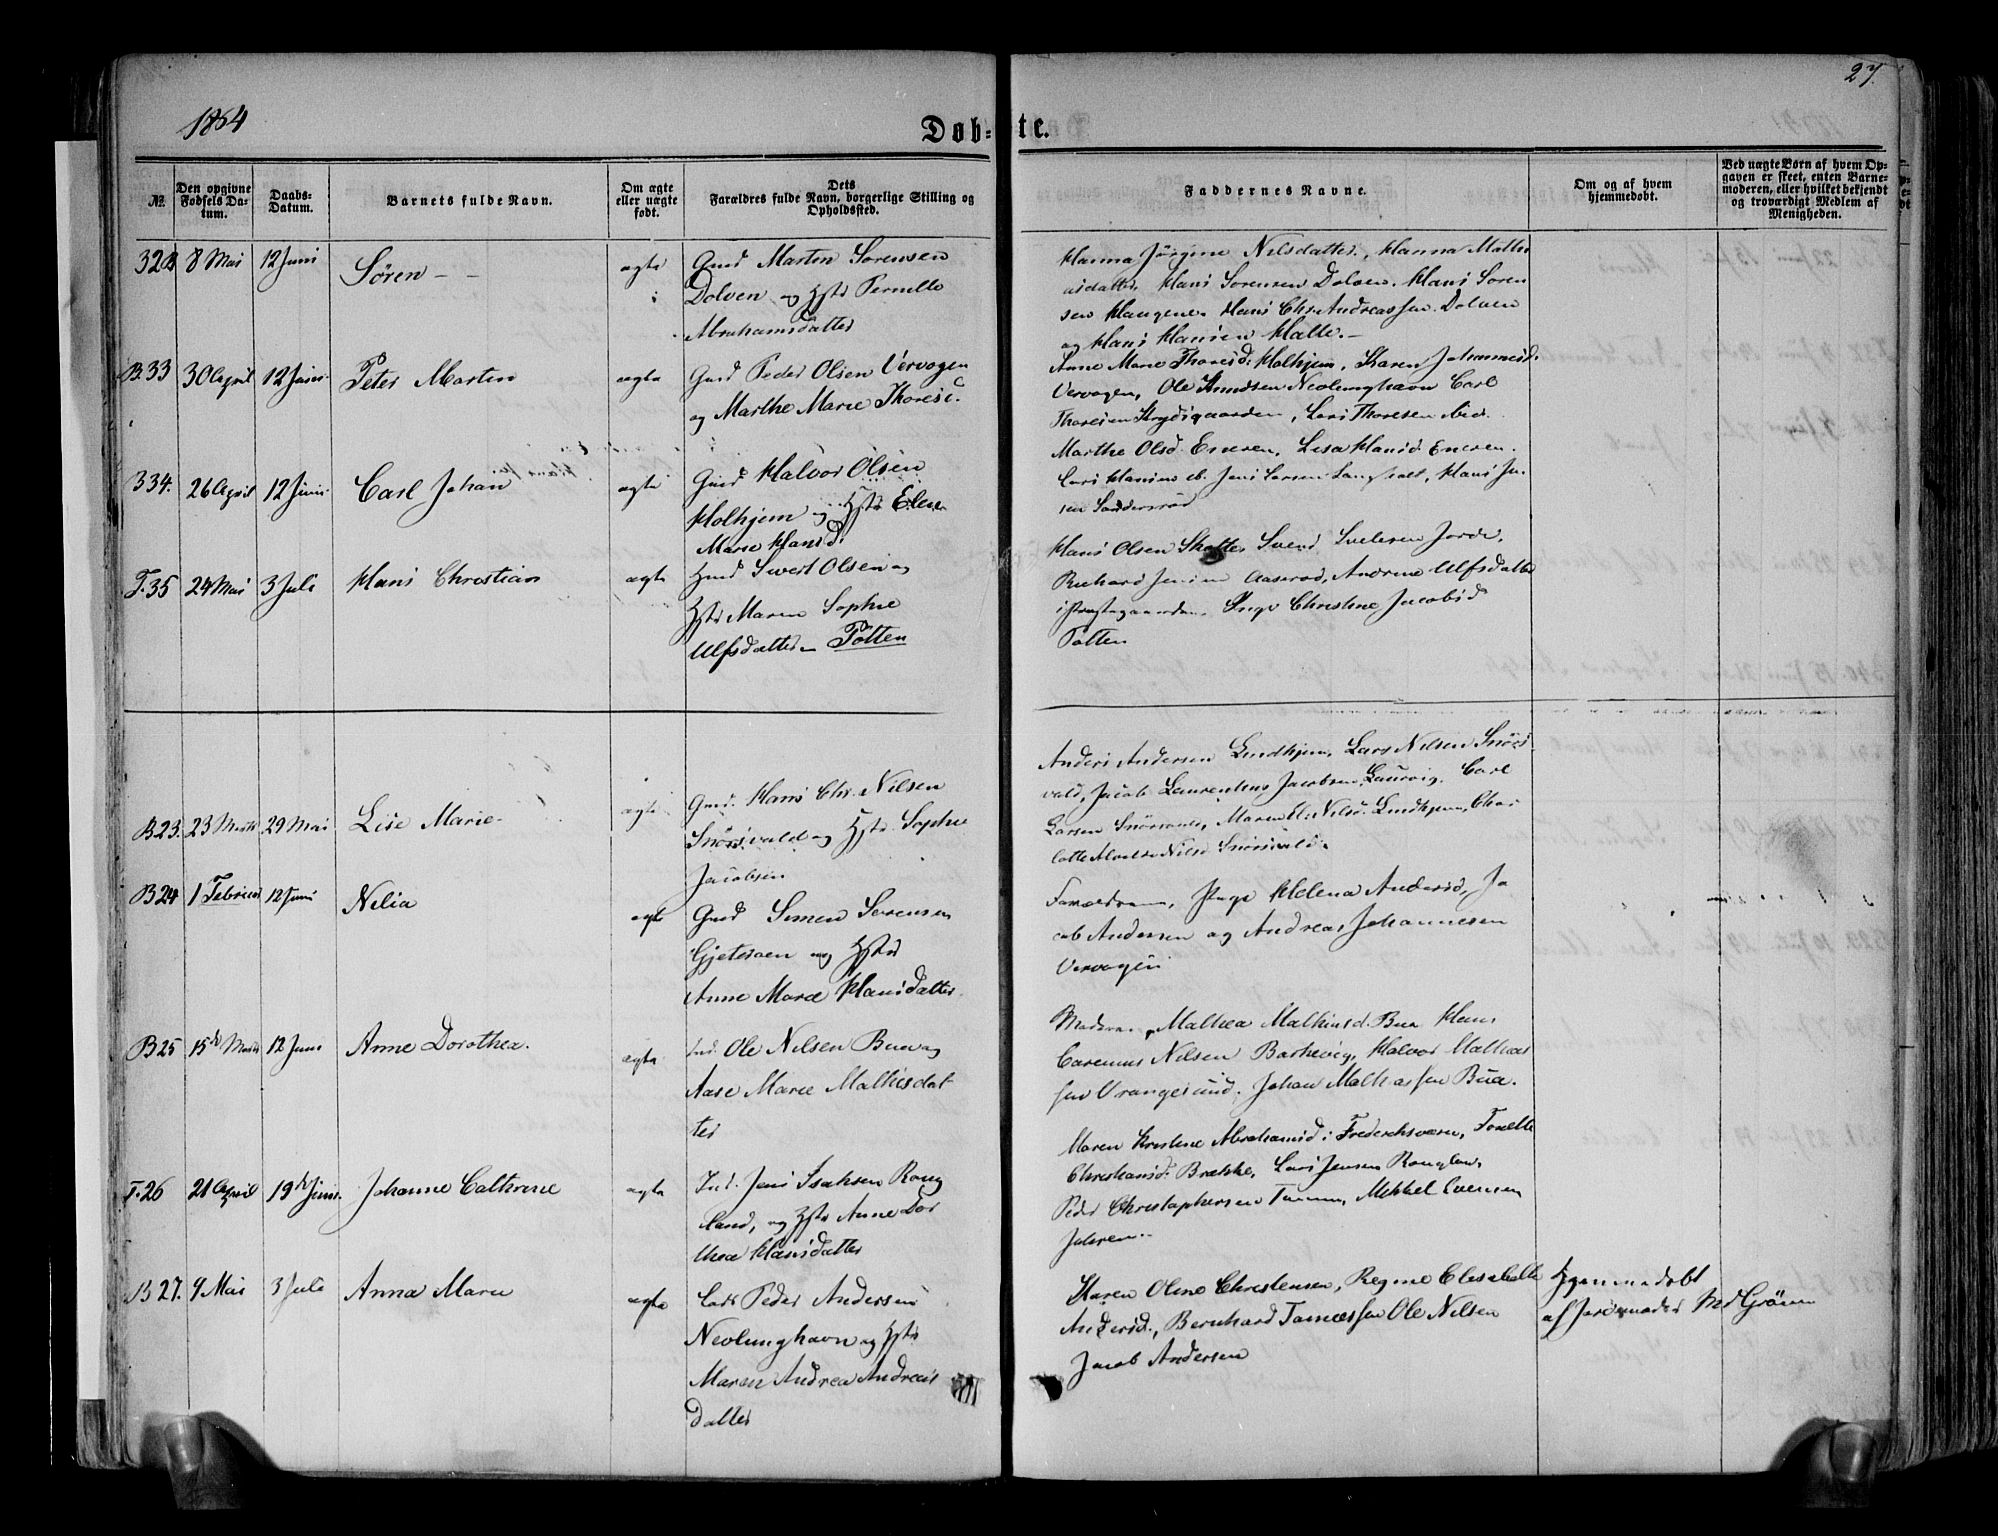 27.
1864
Døb-te.
№
Den opgivne Fødsels Datum.
Daabs-Datum.
Barnets fulde Navn.
Om ægte eller uægte født.
Dets Forældres fulde Navn, borgerlige Stilling og Opholdssted.
Faddernes Navne.
Om og af hvem hjemmedøbt.
Ved uægte Børn af hvem Opgaven er skeet, enten Barnemoderen, eller hvilket bekjendt og troværdigt Medlem af Menigheden.
32B 8 Mai 12 Juni Søren ægte
Gmd Marten Sorensen
Dolven og Hstr Pernille
Abrahamsdatter
Hanna Jörgine Nilsdatter, Hanna Mathi
asdatter Hans Sorensen Dolven, Hans Soren
sen Haugene Hans Chr. Andreassen Dolven
og Hans Hansen Halle.
B.33 30 April 12 Juni Peter Martin ægte
Gmd Peder Olsen Vervogen
og Marthe Marie Thoresd.
Anne Marie Thoresd: Holhjem, Karen Johannesd.
Vervogen, Ole Knudsen Neolunghavn Carl
Thoresen Lars Thoresen ibid.
B34. 26 April 12 Juni Carl Johan ægte
Gmd Halvor Olsen
Holhjem og Hstr Elen
Marie Hansd:
Marthe Olsd Eneren, Lisa Hansd Eneren.
Lars Hansen ib. Jens Larsen Hans Jen
sen
F.35 24 Mai 3 Juli Hans Christian ægte
Hmd Sivert Olsen og
Hstr Maren Sophie
Ulfsdatter Totten
Hans Olsen Svend Jorde,
Richard Jensen Aaserød, Andrine Ulfsdatter
i Præstegaarden, Pige Christine Jacobsd
Totten
B23. 23 Marts 29 Mai Lise Marie ægte
Gmd. Hans Chr. Nilsen
Snörsvald og Hstr Sophie
Jacobsen
Anders Andersen Lindhjem, Lars Nilsen Snörs
vald, Jacob Laurentius Jacobsen Laurvig, Carl
Larsen Maren El. Nilsd. Lindhjem, Char
lotte Nilsd Snörsvald.
B24 1 Februar 12 Juni Nilia ægte
Gmd Simen Sorensen
Gjeteroen og Hstr
Anne Marie Hansdatter.
Forældrene, Pige Helena Andersd, Ja
cob Andersen og Andreas Johannesen
Vervogen
B25 15de Marts 12 Juni Anne Dorothea. ægte
Ind. Ole Nilsen Bua og
Aase Marie Mathisdat
ter
Moderen, Mathea Mathisd. Bua Hans
Carenius Nilsen Barkevig, Halvor Mathias
sen Vrangesund, Johan Mathiassen Bua.
F.26 21 April 19de Juni Johanne Cathrine ægte
Ind. Jens Isaksen Roug
land, og Hstr Anne Dor
thea Hansdatter
Maren Kristine Abrahamsd: Frederiksværn, Torelle
Christiansd: Brekke, Lars Jensen Rougland,
Peder Christophersen Tanum, Mikkel Evensen
Jahren.
B27. 9 Mai 3 Juli Anna Marie ægte
Lods Peder Andersen
Neolunghavn og Hstr
Maren Andrea Andreas
datter
Karen Oline Christensen, Regine Elisabeth
Andersd., Bernhard Tomassen Ole Nilsen
Jacob Andersen
Hjemmedøbt
af Jordemoder Mad Grönn